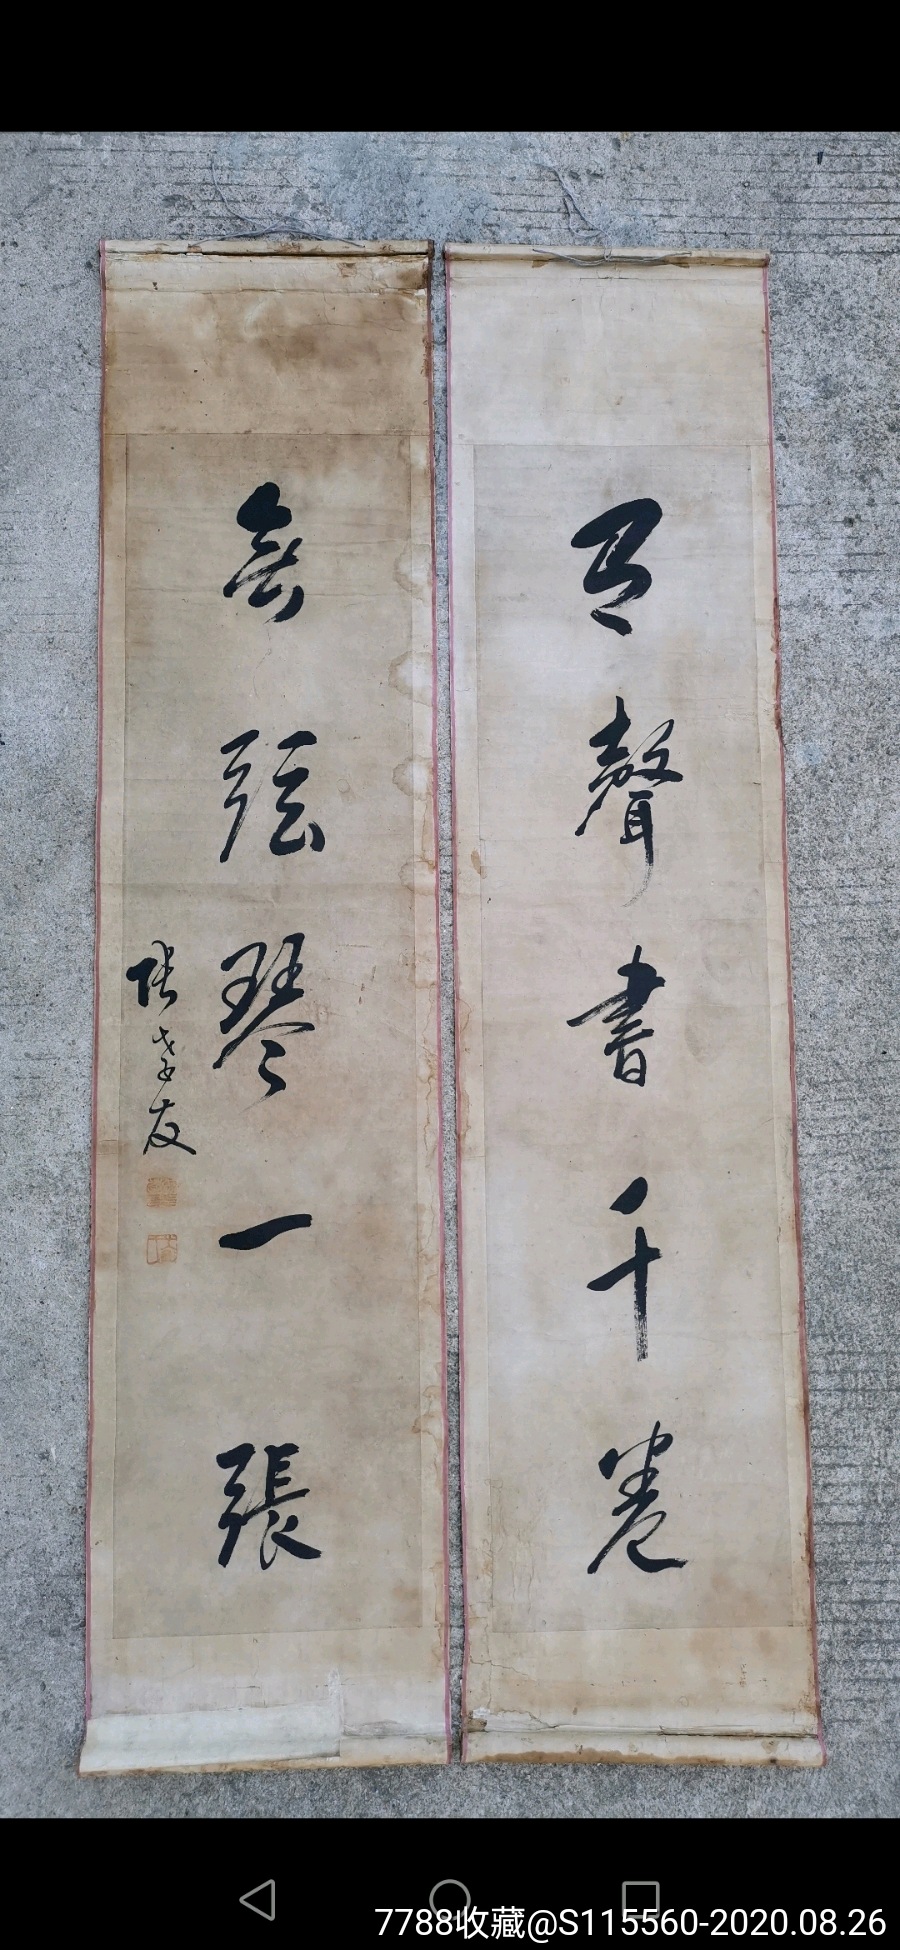 有聲書千卷
無弦琴一張
張孝友
7788收藏@S115560-2020.08.26